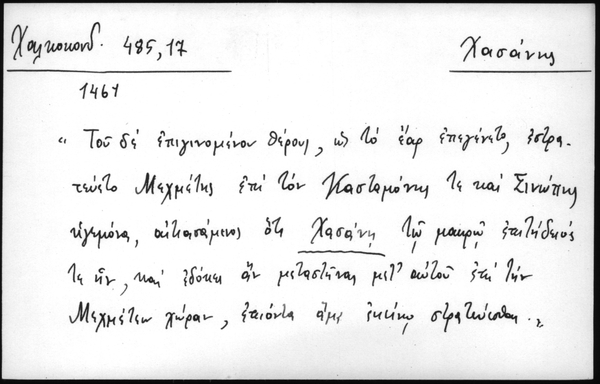 Χαλκοκονδ. 485,17
Χασάνης
1461
“ Τοῦ δέ ἐπιγινομένου θέρους, ὡς τό ἔαρ ἐπεγένετο, ἐστρα-
τεύετο Μεχμέτης ἐπί τόν Κασταμόνης τε καί Σινώπης
ἡγεμόνα, αἰτιασάμενος ὅτι Χασάνῃ τῷ μακρῷ ἐπιτήδειός
τε ἦν, καί ἐδόκει ἄν μεταστῆναι μετ' αὐτοῦ ἐπί τήν
Μεχμέτεω χώραν, ἐπιόντα ἅμα ἐκείνῳ στρατεύεσθαι. „